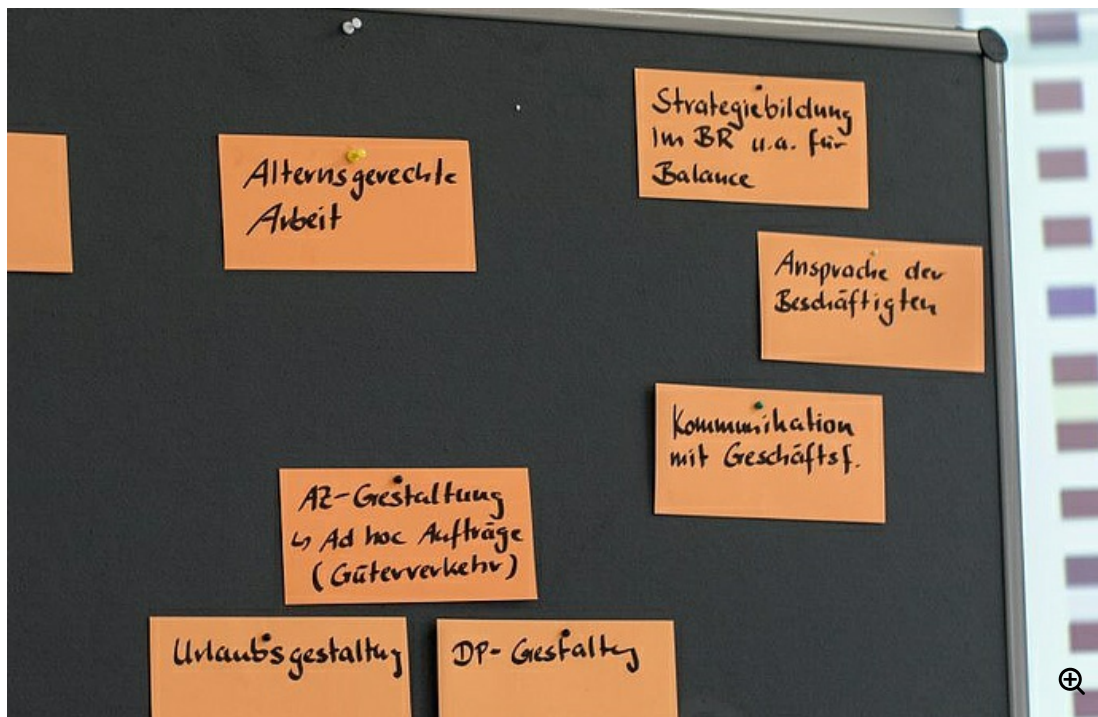 Alternsgerechte
Arbeit
Strategiebildung
im BR u.a. für
Balance
Ansprache der
Beschäftigten
Kommunikation
mit Geschäftsf.
AZ-Gestaltung
↳ Ad hoc Aufträge
(Güterverkehr)
Urlaubsgestaltung
DP-Gestaltg